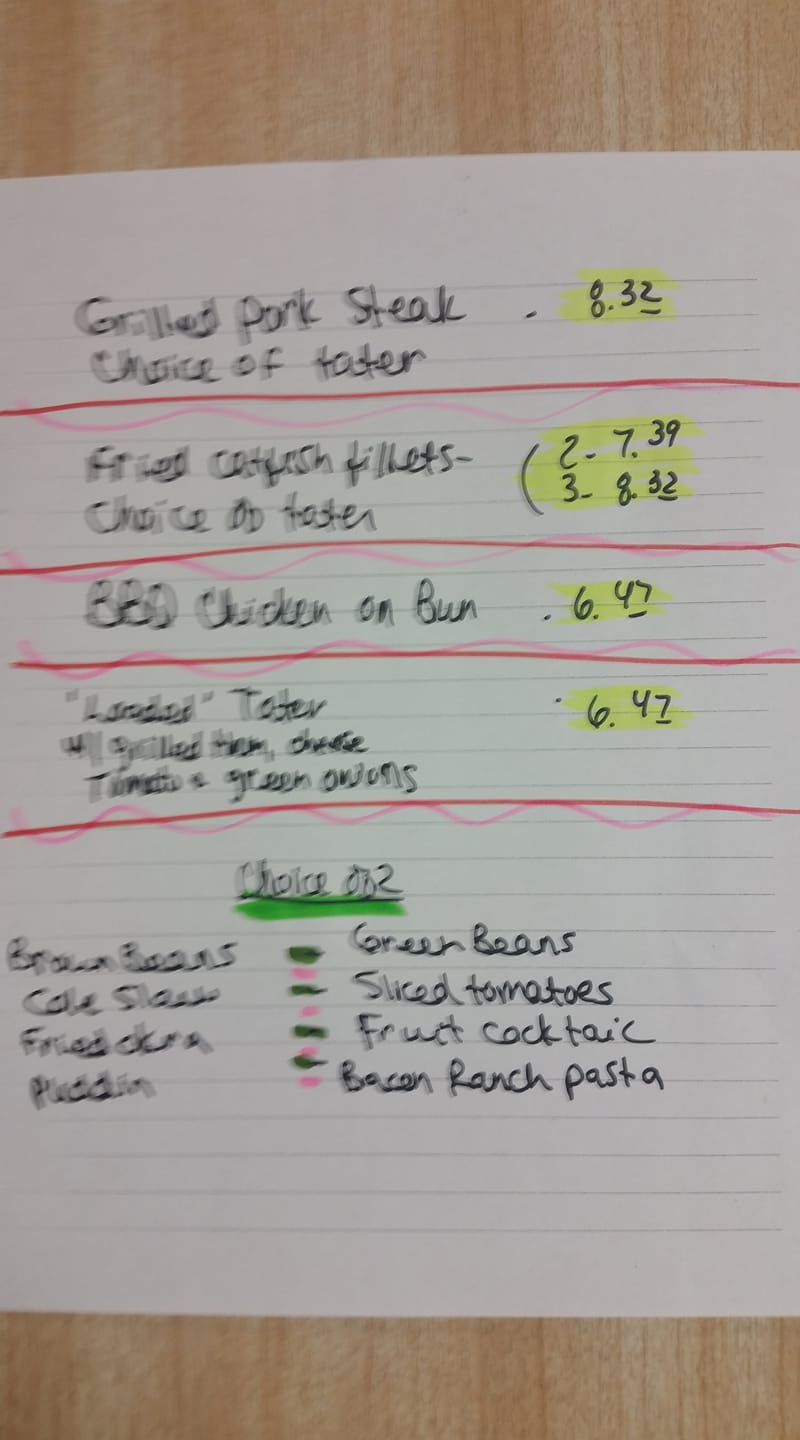 Grilled Pork Steak . 8.32
Choice of tater
Fried catfish fillets- ( 2- 7.39
3- 8.32
Choice of tater
BBQ Chicken on Bun . 6.47
"Loaded" Tater . 6.47
w/ grilled Ham, cheese
Tomato & green onions
Choice of 2
Brown Beans - Green Beans
Cole Slaw - Sliced tomatoes
Fried okra - Fruit cocktail
Puddin - Bacon Ranch pasta